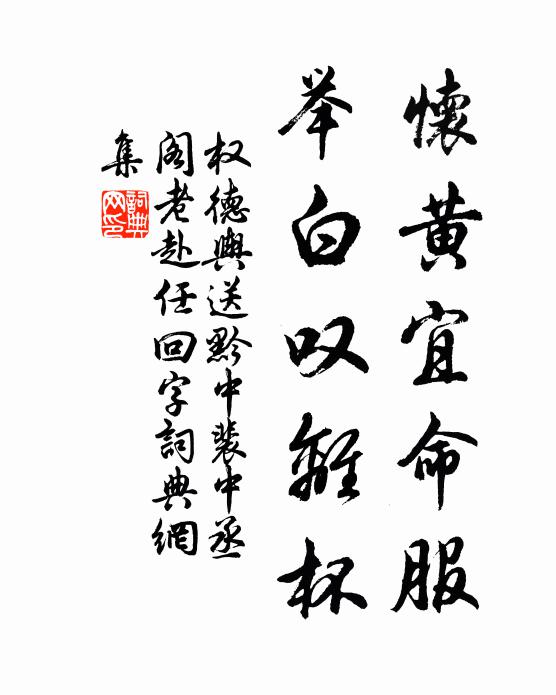 懷黄宜命服
举白叹離杯
权德輿送黔中裴中丞
阁老赴任回字詞典網
集
詞典网印